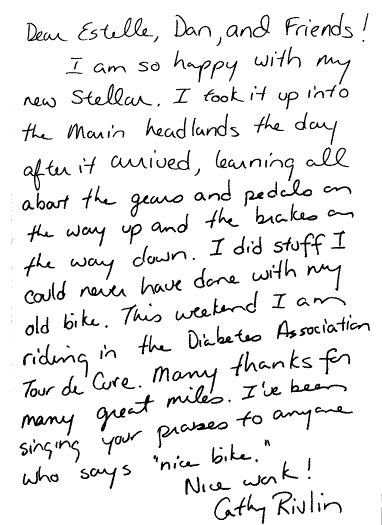 Dear Estelle, Dan, and Friends!
I am so happy with my
new Stellar. I took it up into
the Marin headlands the day
after it arrived, learning all
about the gears and pedals on
the way up and the brakes on
the way down. I did stuff I
could never have done with my
old bike. This weekend I am
riding in the Diabetes Association
Tour de Cure. Many thanks for
many great miles. I've been
singing your praises to anyone
who says "nice bike."
Nice work!
Cathy Rivlin